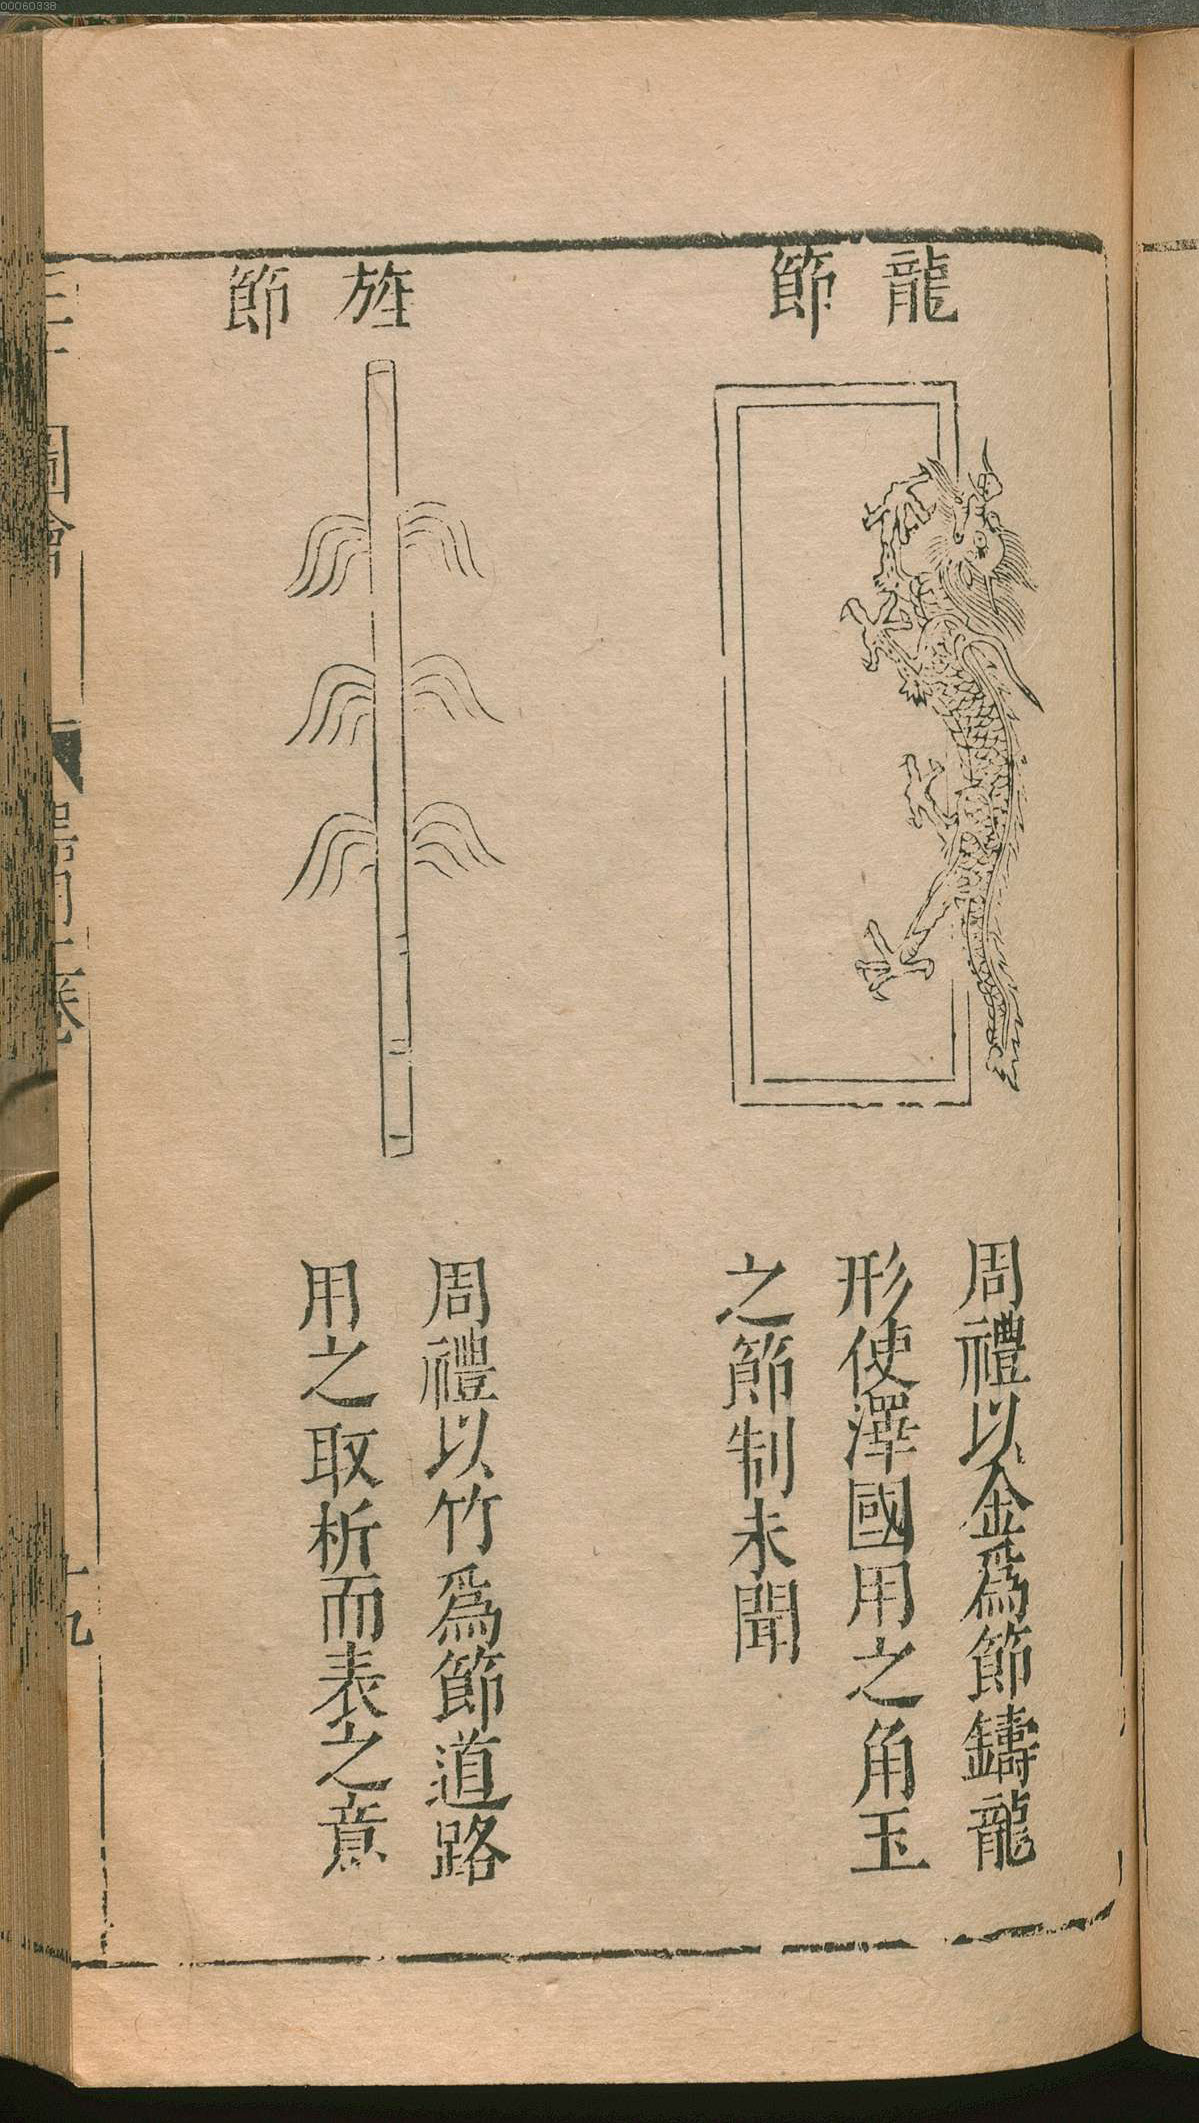 00060338
龍節
周禮以金爲節鑄龍
形使澤國用之角玉
之節制未聞
旌節
周禮以竹爲節道路
用之取析而表之意
圖會